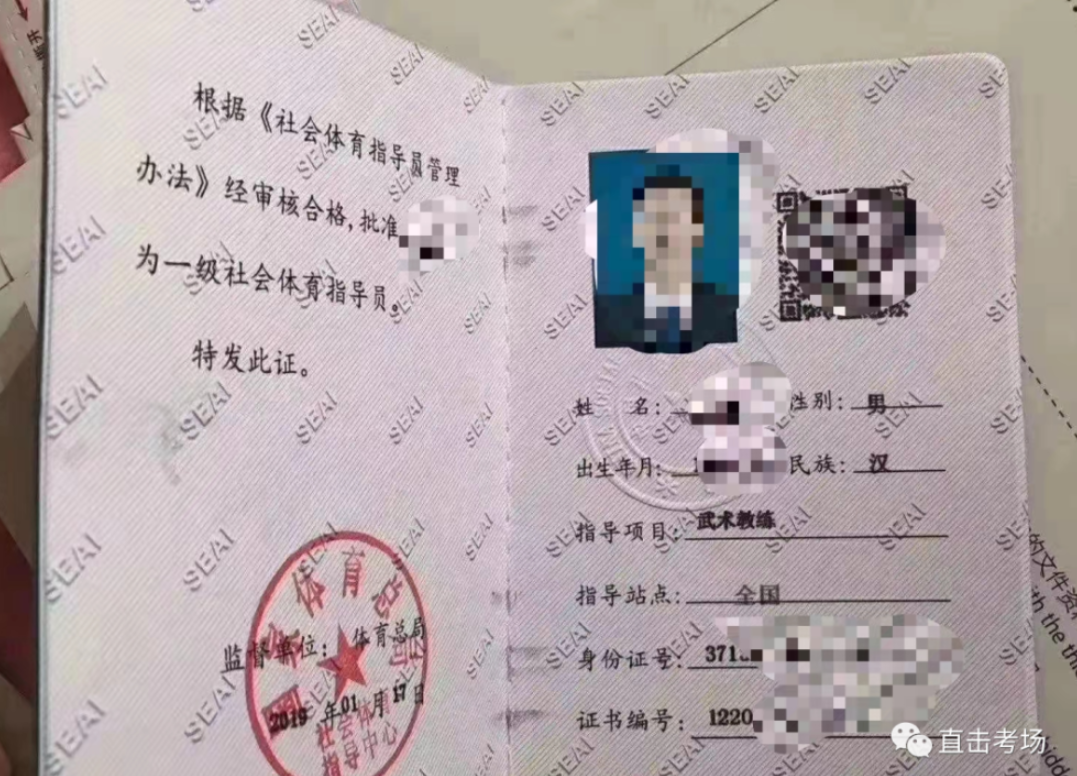 根据《社会体育指导员管理
办法》经审核合格,批准
为一级社会体育指导员。
特发此证。
监督单位: 体育总局
2019 年 01 月 17 日
体育总局
社会体育
指导中心
姓 名:
性别: 男
出生年月: 1
民族: 汉
指导项目: 武术教练
指导站点: 全国
身份证号: 371
证书编号: 1220
SEAI
的文件资
with the thi
直击考场